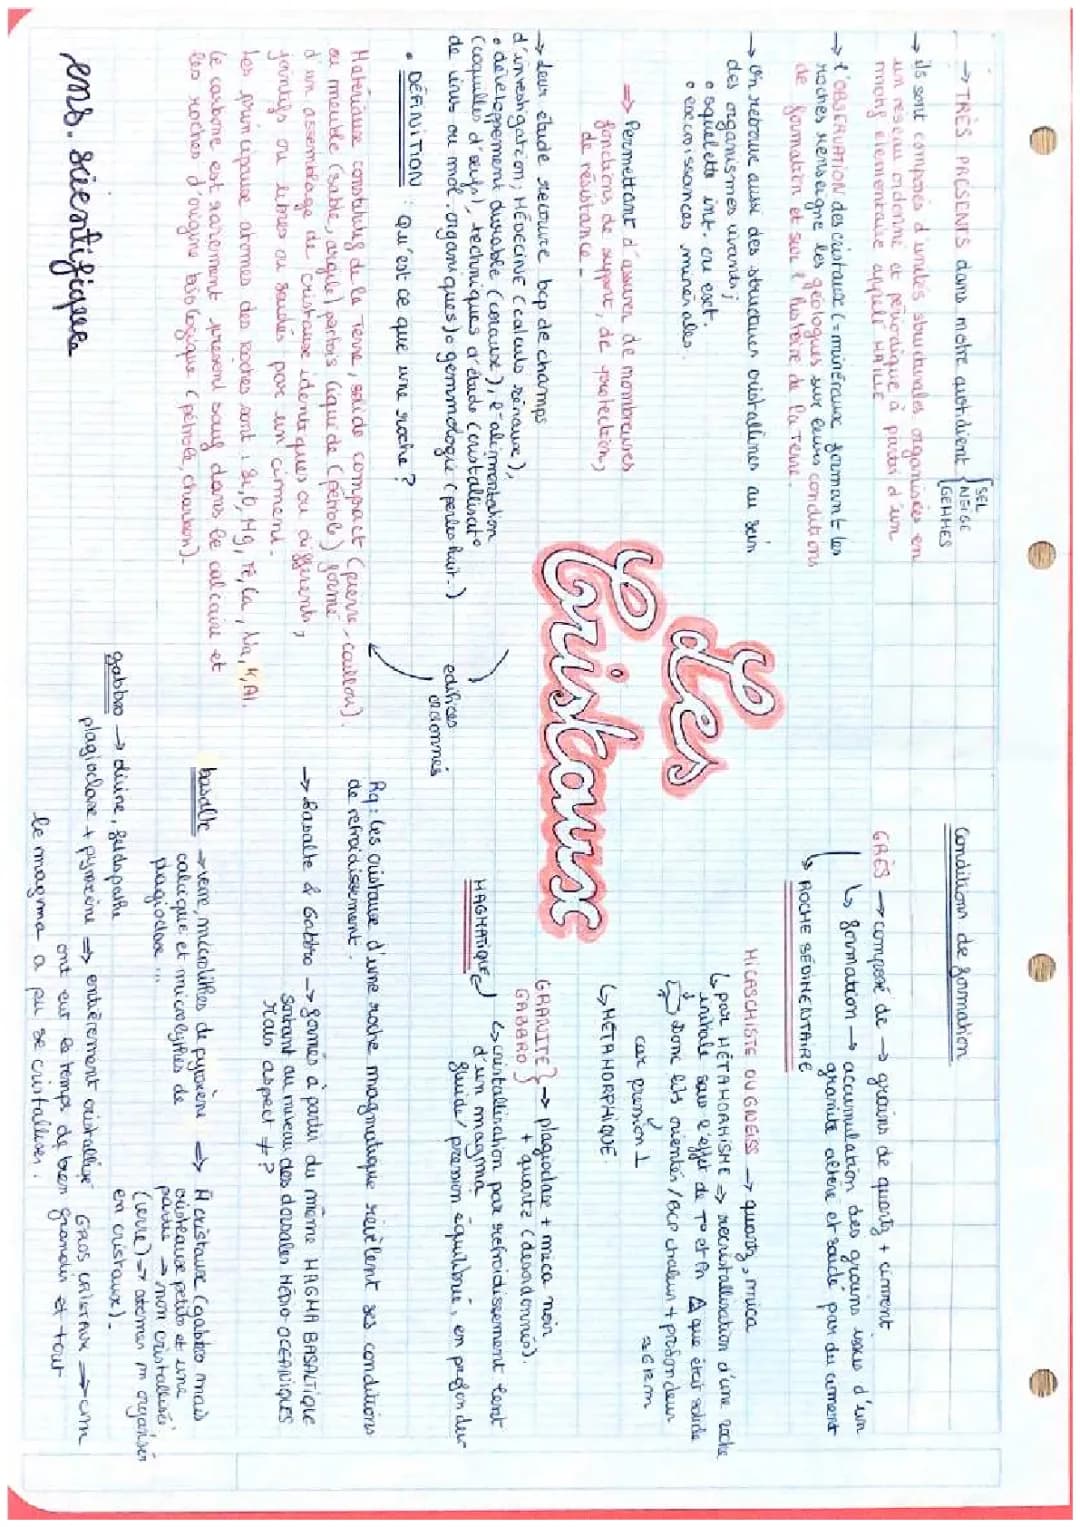 ens. scientifique
Les
Cristaux
→ TRÈS PRÉSENTS dans notre quotidient { SEL
NEIGE
GEMMES
→ ils sont composés d'unités structurales organisées en
un réseau ordonné et périodique à partir d'un
motif élémentaire appelé MAILLE
→ l'OBSERVATION des cristaux (= minéraux formant les
roches renseigne les géologues sur leurs conditions
de formation et sur l'histoire de la Terre.
→ On retrouve aussi des structures cristallines au sein
des organismes vivants ;
• squelette int. ou ext.
• excroissances minérales.
⇒ Permettant d'assurer de nombreuses
fonctions de support, de protection,
de résistance_
→ Leur étude recouvre bcp de champs
d'investigation ; MÉDECINE (calculs rénaux),
• développement durable (coraux), l'alimentation
(coquilles d'œufs), techniques d'étude (cristallisat°
de virus ou mol. organiques) • gemmologie (perles huit.)
• DÉFINITION : Qu'est ce que une roche ?
Matériaux constitutifs de la Terre, solide compact (pierre, caillou),
ou meuble (sable, argile) parfois liquide (pétrole) formé
d'un assemblage de cristaux identiques ou différents,
jointifs ou libres ou soudés par un ciment.
les principaux atomes des roches sont : Si, O, Mg, Fe, Ca, Na, K, Al.
le carbone est rarement présent sauf dans le calcaire et
les roches d'origine biologique (pétrole, charbon)_
edifices
ordonnés
Conditions de formation
GRÈS → composé de → grains de quartz + ciment
↳ formation → accumulation des grains issus d'un
granite altéré et soudé par du ciment
↳ ROCHE SÉDIMENTAIRE
MICASCHISTE OU GNEISS → quartz, mica
↳ par MÉTAMORPHISME ⇒ recristallisation d'une roche
initiale sous l'effet de T° et Ph Δ que était solide
Donc lits orientés / Bcp chaleur + profondeur
car pression ⊥
≈ 6 km
↳ MÉTAMORPHIQUE.
GRANITE } → plagioclase + mica noir
GABBRO } + quartz (desordonnés).
MAGMATIQUE ↳ cristallisation par refroidissement lent
d'un magma
guidé / pression équilibré, en profondeur
Rq : les cristaux d'une roche magmatique révèlent ses conditions
de refroidissement.
→ Basalte & Gabbro → formés à partir du même MAGMA BASALTIQUE
sortant au niveau des dorsales MÉDIO-OCÉANIQUES
mais aspect ≠ ?
basalte → verre, microlithes de pyroxène
calcique et microlythes de
plagioclase ...
⇒ ≠ cristaux (gabbro mais
cristeaux petits et une
partie → non cristallisée
(verre) → atomes m organiser
en cristaux)_
gabbro → olivine, feldspaths
plagioclase + pyroxène ⇒ entièrement cristallisé GROS CRISTAUX → cm
ont eut le temps de bien grandir et tout
le magma a pu se cristalliser.